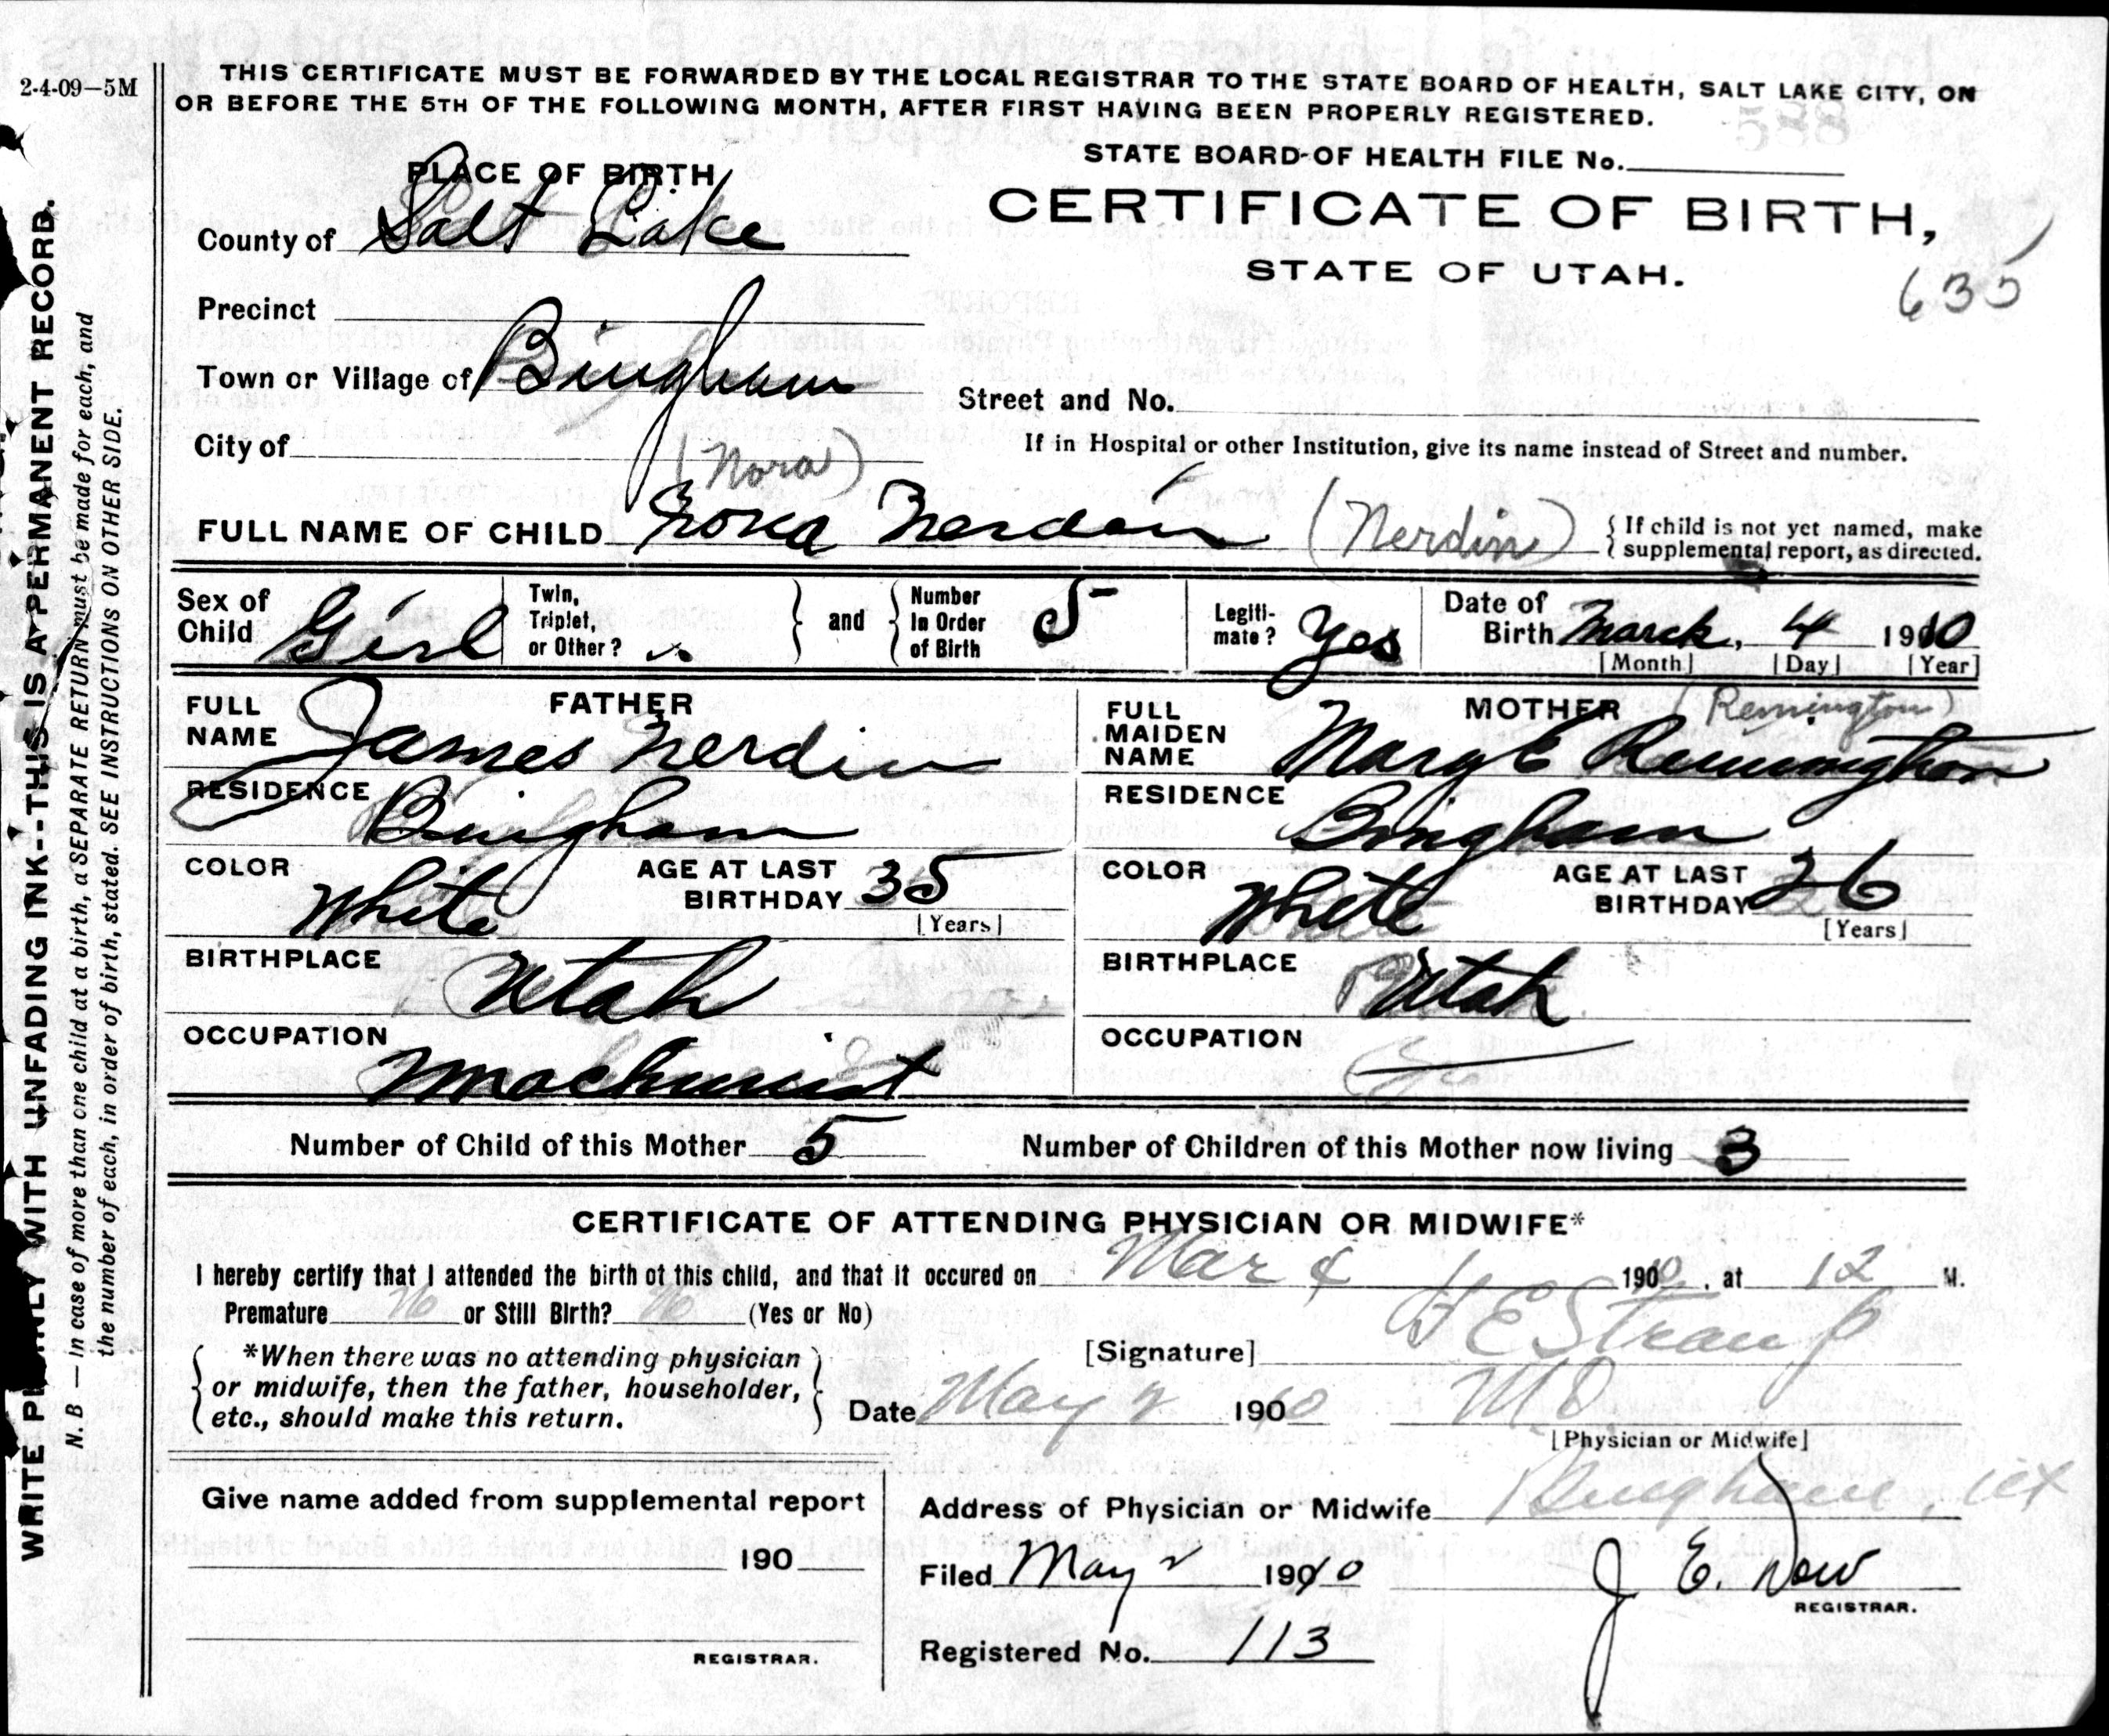 2-4-09—5M
THIS CERTIFICATE MUST BE FORWARDED BY THE LOCAL REGISTRAR TO THE STATE BOARD OF HEALTH, SALT LAKE CITY, ON
OR BEFORE THE 5TH OF THE FOLLOWING MONTH, AFTER FIRST HAVING BEEN PROPERLY REGISTERED.
WRITE PLAINLY WITH UNFADING INK--THIS IS A PERMANENT RECORD.
N. B — In case of more than one child at a birth, a SEPARATE RETURN must be made for each, and
the number of each, in order of birth, stated. SEE INSTRUCTIONS ON OTHER SIDE.
STATE BOARD OF HEALTH FILE No.
CERTIFICATE OF BIRTH,
STATE OF UTAH.
635
PLACE OF BIRTH
County of Salt Lake
Precinct
Town or Village of Bingham
City of
Street and No.
If in Hospital or other Institution, give its name instead of Street and number.
(Nora)
FULL NAME OF CHILD Nora Nerdin (Nerdin) { If child is not yet named, make
supplemental report, as directed.
Sex of Child Girl
Twin, Triplet, or Other?
and
Number In Order of Birth 5
Legiti-mate? Yes
Date of Birth March, 4 1910
[Month] [Day] [Year]
FATHER
FULL NAME James Nerdin
RESIDENCE Bingham
COLOR White
AGE AT LAST BIRTHDAY 35
[Years]
BIRTHPLACE Utah
OCCUPATION Machinist
MOTHER (Remington)
FULL MAIDEN NAME Mary E Remington
RESIDENCE Bingham
COLOR White
AGE AT LAST BIRTHDAY 26
[Years]
BIRTHPLACE Utah
OCCUPATION
Number of Child of this Mother 5
Number of Children of this Mother now living 3
CERTIFICATE OF ATTENDING PHYSICIAN OR MIDWIFE*
I hereby certify that I attended the birth of this child, and that it occured on Mar 4 1910, at 12 M.
Premature No or Still Birth? No (Yes or No)
*When there was no attending physician
or midwife, then the father, householder,
etc., should make this return.
[Signature] H E Straup
Date May 2 1900 M.D
[Physician or Midwife]
Give name added from supplemental report
190
REGISTRAR.
Address of Physician or Midwife Bingham, Ut
Filed May 2 1910 J. E. Dow
REGISTRAR.
Registered No. 113